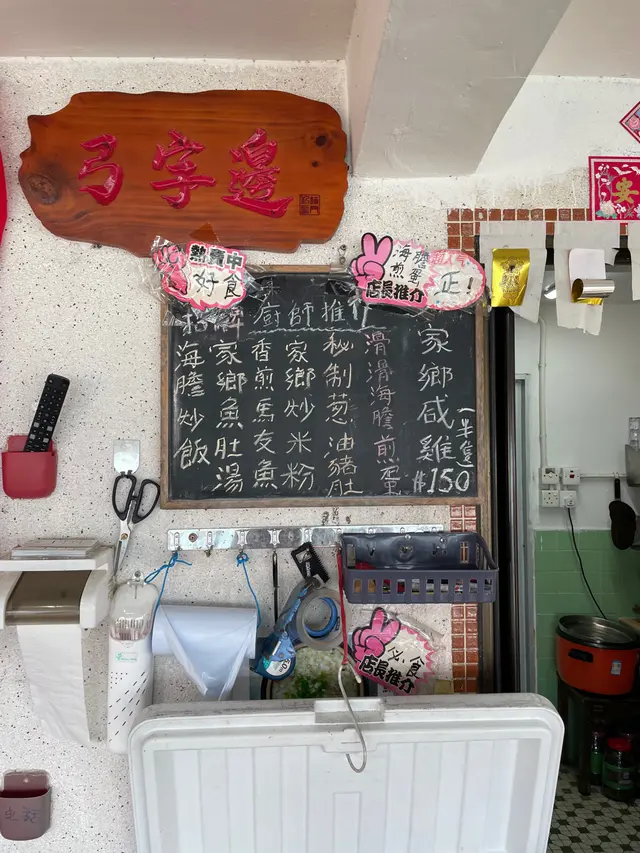 弓字邊
熱賣中
好食
海膽
煎蛋
店長推介
正！
招牌
廚師推介
家鄉咸雞
一半隻
$150
滑滑海膽煎蛋
秘制葱油豬肚
家鄉炒米粉
香煎馬友魚
家鄉魚肚湯
海膽炒飯
必食
店長推介
安